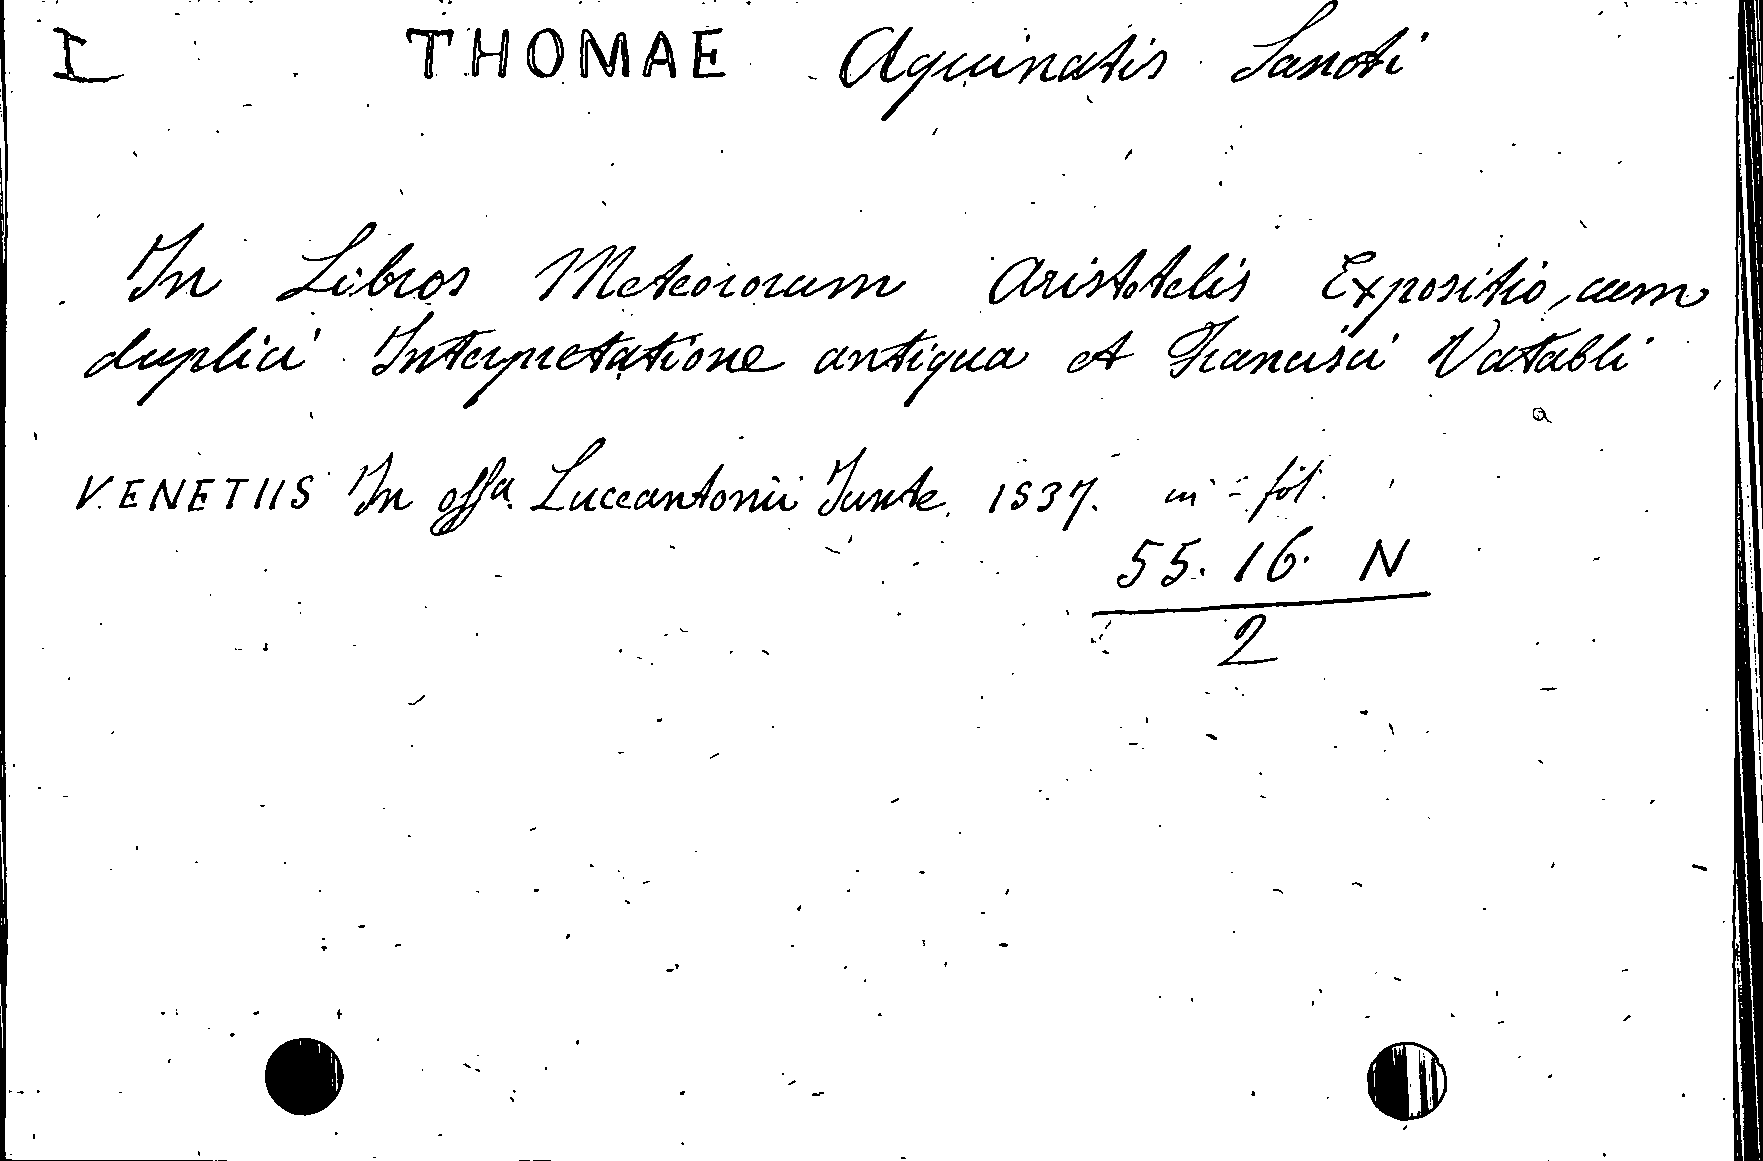 I THOMAE Aquinatis Sancti
In Libros Meteororum Aristotelis Expositio, cum
duplici Interpretatione antiqua et Francisci Vatabli
VENETIIS In offa. Luceantonii Junte. 1537. in = fol.
55. 16. N
2